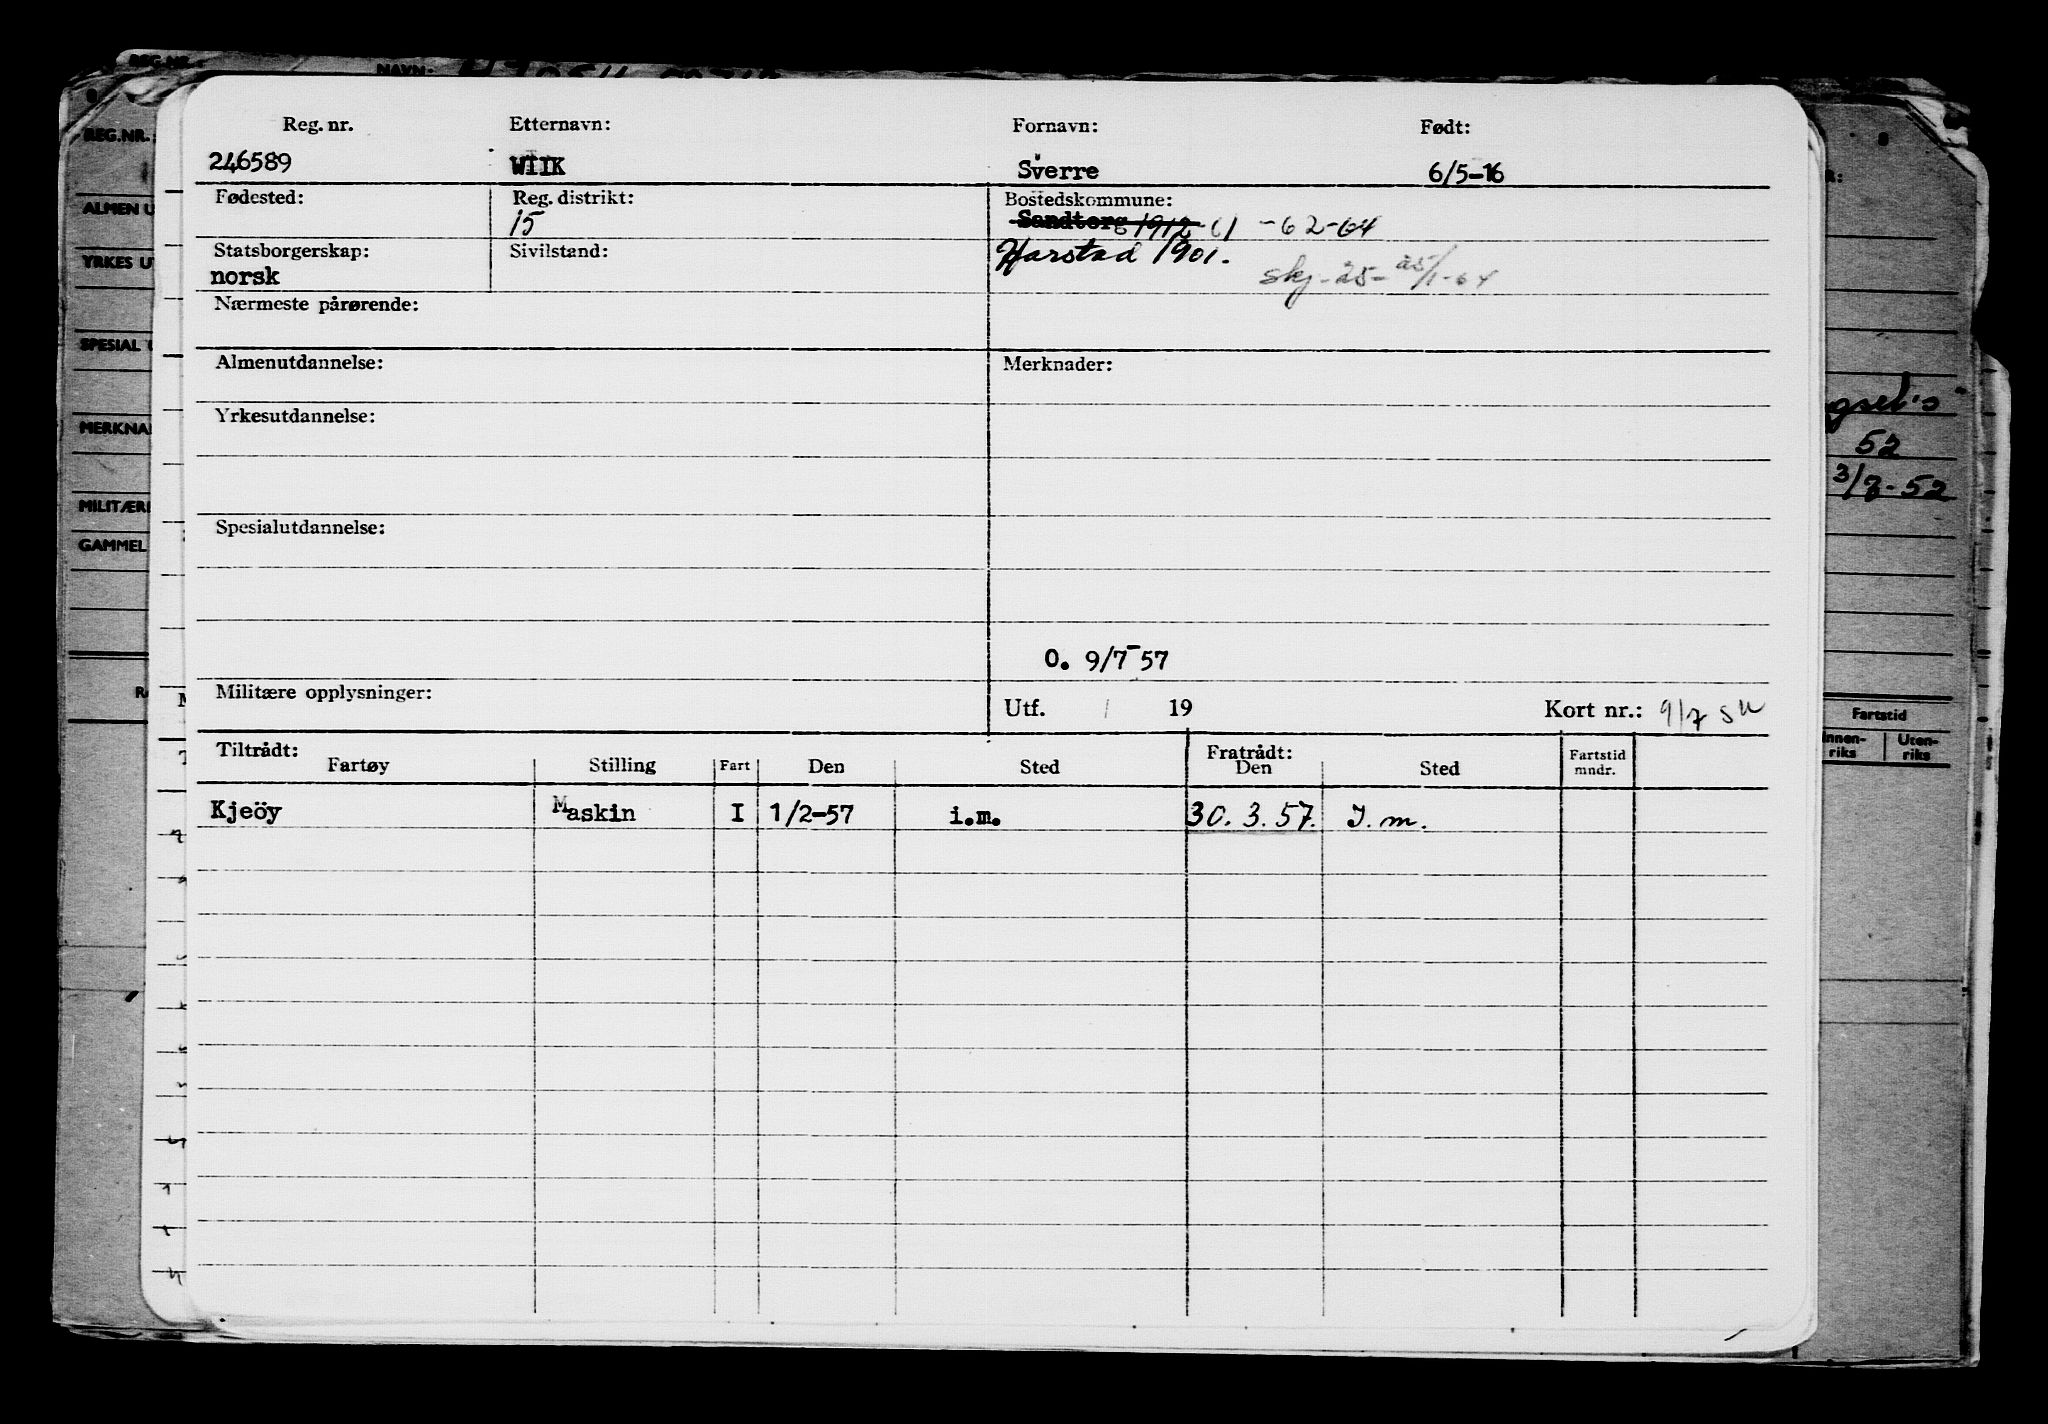 REG.NR.:
NAVN:
REG.NR.:
ALMEN U
YRKES U
SPESIAL
MERKNA
MILITÆRE
GAMMEL
Reg. nr. Etternavn: Fornavn: Født:
246589 WIIK Sverre 6/5-16
Fødested: Reg. distrikt: Bostedskommune:
15 Sandtorg 1912 61 -62-64
Statsborgerskap: Sivilstand: Harstad 1901.
norsk skj-25- 25/1-64
Nærmeste pårørende:
Almenutdannelse: Merknader:
Yrkesutdannelse:
Spesialutdannelse:
O. 9/7-57
Militære opplysninger: Utf. / 19 Kort nr.: 9/7
Tiltrådt: Fratrådt:
Fartøy Stilling Fart Den Sted Den Sted Fartstid mndr.
Kjeöy Maskin I 1/2-57 i.m. 30.3.57. I.m.
52
3/7-52
Fartstid
Innen-riks Uten-riks